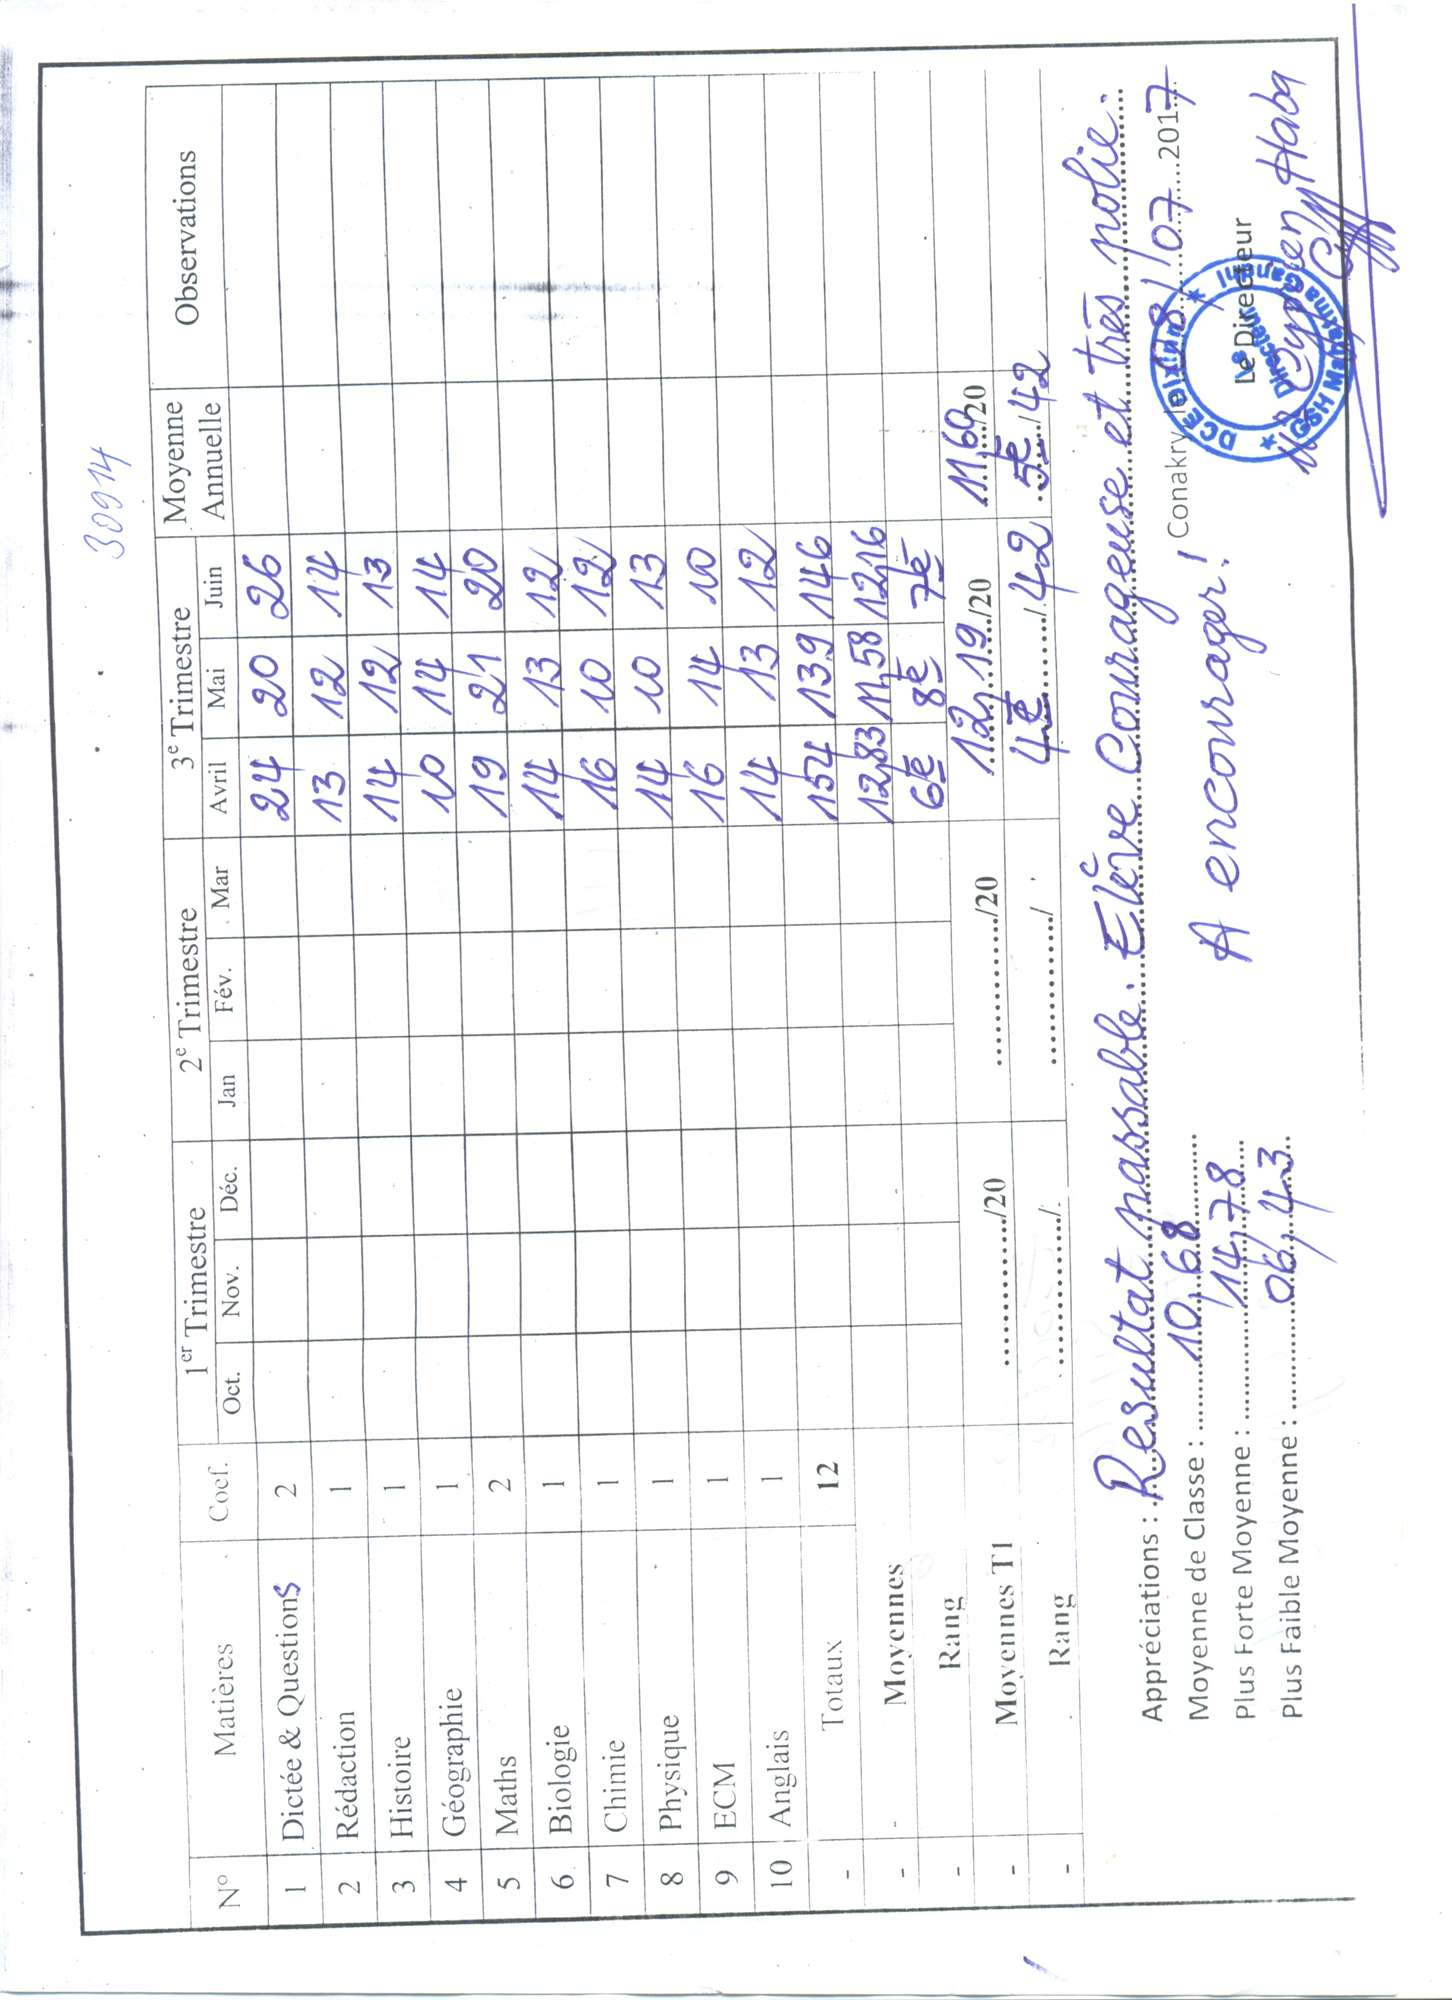 30914
N° Matières Coef. 1er Trimestre 2e Trimestre 3e Trimestre Moyenne Annuelle Observations
Oct. Nov. Déc. Jan Fév. Mar Avril Mai Juin
1 Dictée & Questions 2 24 20 26
2 Rédaction 1 13 12 14
3 Histoire 1 14 12 13
4 Géographie 1 10 14 14
5 Maths 2 19 21 20
6 Biologie 1 14 13 12
7 Chimie 1 16 10 12
8 Physique 1 14 10 13
9 ECM 1 16 14 10
10 Anglais 1 14 13 12
- Totaux 12 154 139 146
- Moyennes 12,83 11,58 12,16
- Rang 6e 8e 7e
- Moyennes T1 ............/20 ............/20 12,19/20 11,69/20
- Rang ............/ ............/ 4e/42 5e/42
Appréciations : Resultat passable. Elève Courageuse et très polie.
Moyenne de Classe : 10,68 A encourager! Conakry, le 18/07 2017
Plus Forte Moyenne : 14,78 Le Directeur
Plus Faible Moyenne : 06,43 Mr Cyprien Haba
★ DCE Dixinn ★ GSH Mahatma Gandhi
Le Directeur